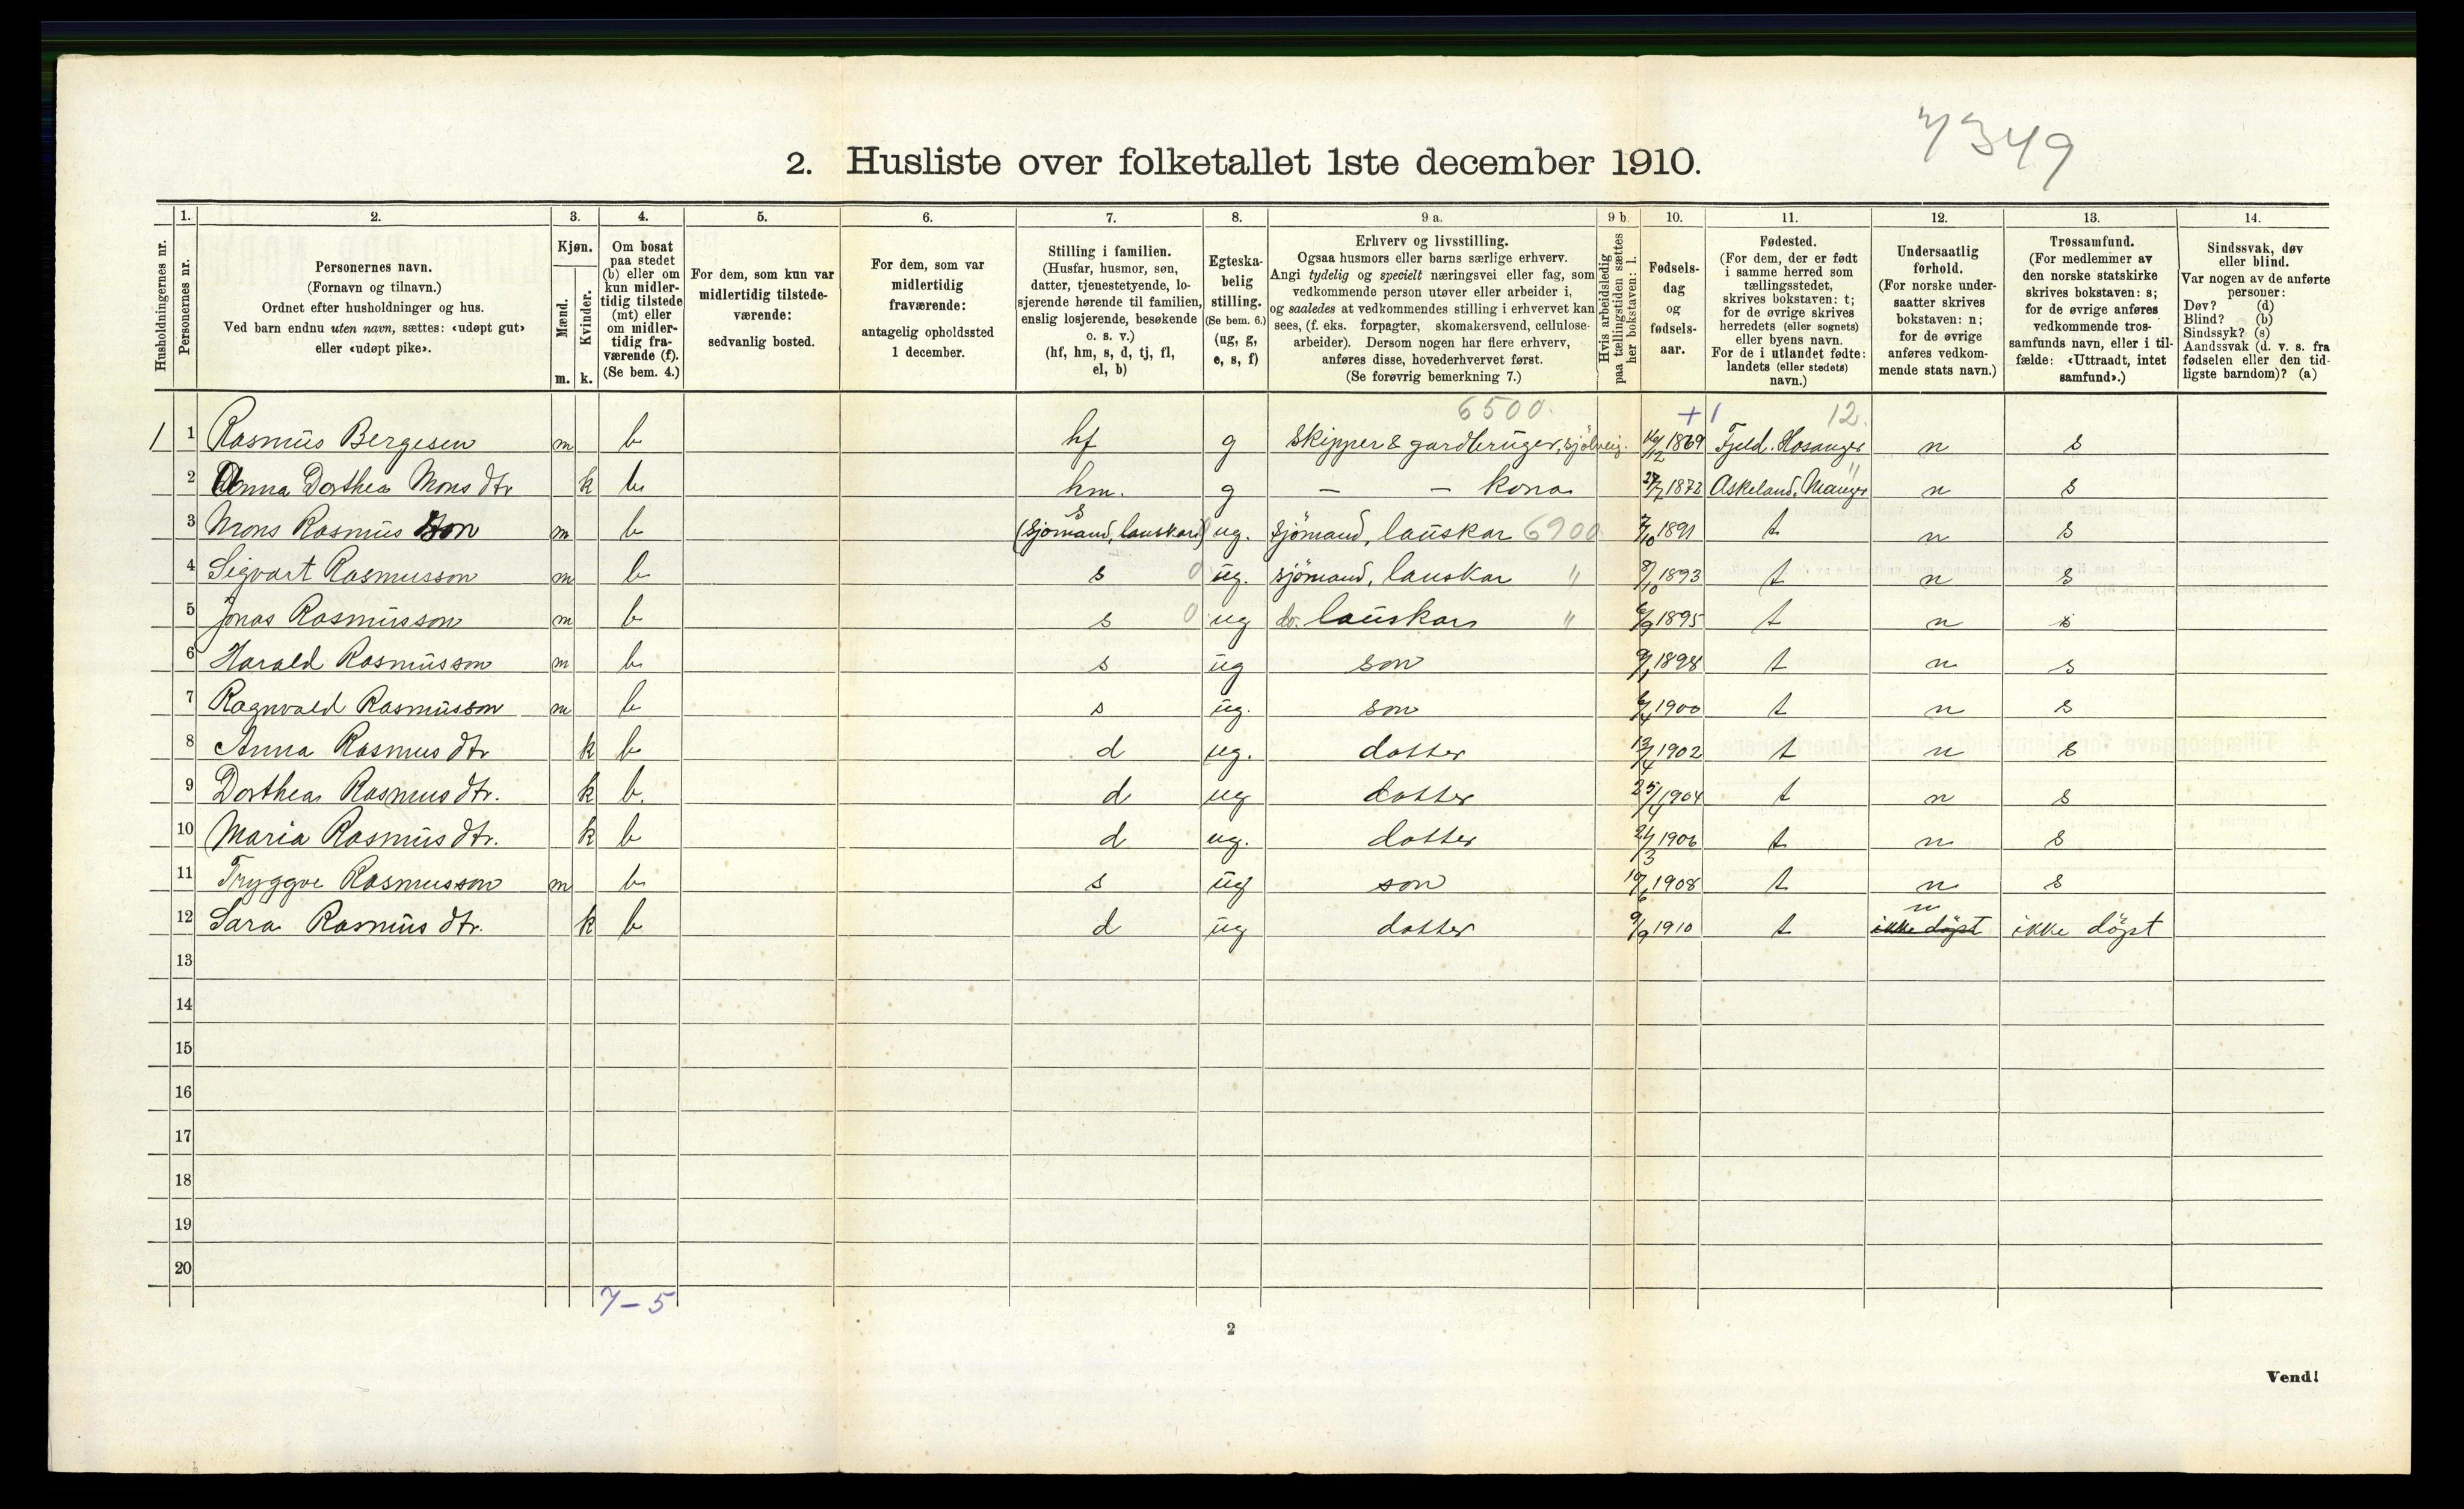 7349
2. Husliste over folketallet 1ste december 1910.
Husholdningernes nr.
1. Personernes nr.
2. Personernes navn. (Fornavn og tilnavn.) Ordnet efter husholdninger og hus. Ved barn endnu uten navn, sættes: «udøpt gut» eller «udøpt pike».
3. Kjøn. Mænd. m. Kvinder. k.
4. Om bosat paa stedet (b) eller om kun midlertidig tilstede (mt) eller om midlertidig fraværende (f). (Se bem. 4.)
5. For dem, som kun var midlertidig tilstedeværende: sedvanlig bosted.
6. For dem, som var midlertidig fraværende: antagelig opholdssted 1 december.
7. Stilling i familien. (Husfar, husmor, søn, datter, tjenestetyende, losjerende hørende til familien, enslig losjerende, besøkende o. s. v.) (hf, hm, s, d, tj, fl, el, b)
8. Egteskabelig stilling. (Se bem. 6.) (ug, g, e, s, f)
9 a. Erhverv og livsstilling. Ogsaa husmors eller barns særlige erhverv. Angi tydelig og specielt næringsvei eller fag, som vedkommende person utøver eller arbeider i, og saaledes at vedkommendes stilling i erhvervet kan sees, (f. eks. forpagter, skomakersvend, cellulosearbeider). Dersom nogen har flere erhverv, anføres disse, hovederhvervet først. (Se forøvrig bemerkning 7.)
9 b Hvis arbeidsledig paa tællingstiden sættes her bokstaven: l.
10. Fødselsdag og fødselsaar.
11. Fødested. (For dem, der er født i samme herred som tællingsstedet, skrives bokstaven: t; for de øvrige skrives herredets (eller sognets) eller byens navn. For de i utlandet fødte: landets (eller stedets) navn.)
12. Undersaatlig forhold. (For norske undersaatter skrives bokstaven: n; for de øvrige anføres vedkommende stats navn.)
13. Trossamfund. (For medlemmer av den norske statskirke skrives bokstaven: s; for de øvrige anføres vedkommende trossamfunds navn, eller i tilfælde: «Uttraadt, intet samfund».)
14. Sindssvak, døv eller blind. Var nogen av de anførte personer: Døv? (d) Blind? (b) Sindssyk? (s) Aandssvak (d. v. s. fra fødselen eller den tidligste barndom)? (a)
6500. +1 12.
1 1 Rasmus Bergesen m b hf g Skipper & gardbruger, sjölveig. 16/12 1869 Fjeld. Hosanger n s
2 Anna Dorthea Mons dtr k b hm. g – – kona 27/7 1872 Askeland, Manger " n s
3 Mons Rasmus son m b s (sjömand, lauskar) ug. sjömand, lauskar 6900 7/10 1891 t n s
4 Sigvart Rasmusson m b s 0 ug. sjömand, lauskar " 8/10 1893 t n s
5 Jonas Rasmusson m b s 0 ug do. lauskar " 6/9 1895 t n s
6 Harald Rasmusson m b s ug son 9/1 1898 t n s
7 Ragnvald Rasmusson m b s ug. son 6/4 1900 t n s
8 Anna Rasmus dtr k b d ug. dotter 13/4 1902 t n s
9 Dorthea Rasmus dtr. k b. d ug dotter 25/4 1904 t n s
10 Maria Rasmus dtr. k b d ug. dotter 24/3 1906 t n s
11 Tryggve Rasmusson m b s ug son 10/6 1908 t n s
12 Sara Rasmus dtr. k b d ug dotter 9/9 1910 t n ikke döpt ikke döpt
13
14
15
16
17
18
19
20
7–5
2
Vend!